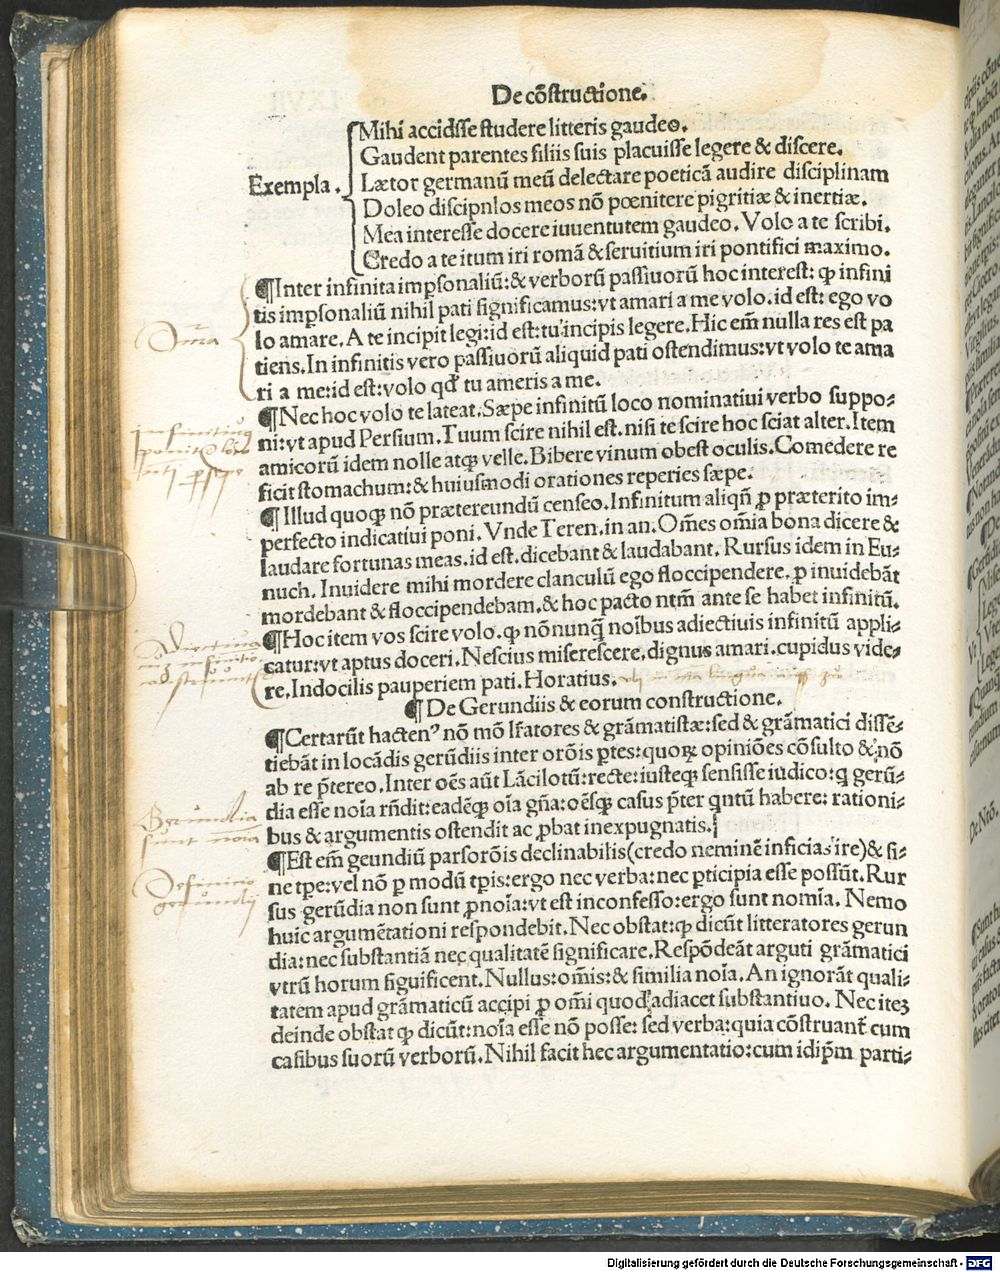 De cõstructione.
Mihi accidsse studere litteris gaudeo.
Gaudent parentes filiis suis placuisse legere & discere.
Exempla. Lætor germanũ meũ delectare poeticã audire disciplinam
Doleo discipnlos meos nõ pœnitere pigritiæ & inertiæ.
Mea interesse docere iuuentutem gaudeo. Volo a te scribi.
Credo a te itum iri romã & seruitium iri pontifici maximo.
¶Inter infinita imꝑsonaliũ: & verborũ passiuorũ hoc interest: ꝙ infini
tis imꝑsonaliũ nihil pati significamus: vt amari a me volo. id est: ego vo
lo amare. A te incipit legi: id est: tu incipis legere. Hic em̃ nulla res est pa
tiens. In infinitis vero passiuorũ aliquid pati ostendimus: vt volo te ama
ri a me: id est: volo qđ tu ameris a me.
¶Nec hoc volo te lateat. Sæpe infinitũ loco nominatiui verbo suppo-
ni: vt apud Persium. Tuum scire nihil est. nisi te scire hoc sciat alter. Item
amicorũ idem nolle atqꝫ velle. Bibere vinum obest oculis. Comedere re
ficit stomachum: & huiusmodi orationes reperies sæpe.
¶Illud quoqꝫ nõ prætereundũ censeo. Infinitum aliqñ ꝓ præterito im-
perfecto indicatiui poni. Vnde Teren. in an. Om̃es om̃ia bona dicere &
laudare fortunas meas. id est. dicebant & laudabant. Rursus idem in Eu-
nuch. Inuidere mihi mordere clanculũ ego floccipendere. ꝓ inuidebãt
mordebant & floccipendebam. & hoc pacto ntm̃ ante se habet infinitũ.
¶Hoc item vos scire volo. ꝙ nõnunq̃ noĩbus adiectiuis infinitũ appli-
catur: vt aptus doceri. Nescius miserescere. dignus amari. cupidus vide-
re. Indocilis pauperiem pati. Horatius.
¶De Gerundiis & eorum constructione.
¶Certarũt hactenꝰ nõ mõ lr̃atores & grãmatistæ: sed & grãmatici dissẽ-
tiebãt in locãdis gerũdiis inter orõis ꝑtes: quoꝝ opiniões cõsulto & nõ
ab re p̃tereo. Inter oẽs aũt Lãcilotũ: recte: iusteqꝫ sensisse iudico: q gerũ-
dia esse noĩa rñdit: eadẽqꝫ oĩa gña: oẽsqꝫ casus p̃ter qntũ habere: rationi-
bus & argumentis ostendit ac ꝓbat inexpugnatis.
¶Est em̃ geundiũ parsorõis declinabilis (credo neminẽ inficias ire) & si-
ne tpe: vel nõ ꝑ modũ tp̃is: ergo nec verba: nec ꝑticipia esse possũt. Rur
sus gerũdia non sunt ꝓnoĩa: vt est inconfesso: ergo sunt nomĩa. Nemo
huic argumẽtationi respondebit. Nec obstat: ꝙ dicũt litteratores gerun
dia: nec substantiã nec qualitatẽ significare. Respõdeãt arguti grãmatici
vtrũ horum siguificent. Nullus: om̃is: & similia noĩa. An ignorãt quali-
tatem apud grãmaticũ accipi ꝓ om̃i quod adiacet substantiuo. Nec iteꝫ
deinde obstat ꝙ dicũt: noĩa esse nõ posse: sed verba: quia cõstruant̃ cum
casibus suorũ verborũ. Nihil facit hec argumentatio: cum idip̃m parti-
Gerundia
sunt noĩa
Definicio
gerundij
Digitalisierung gefördert durch die Deutsche Forschungsgemeinschaft - DFG